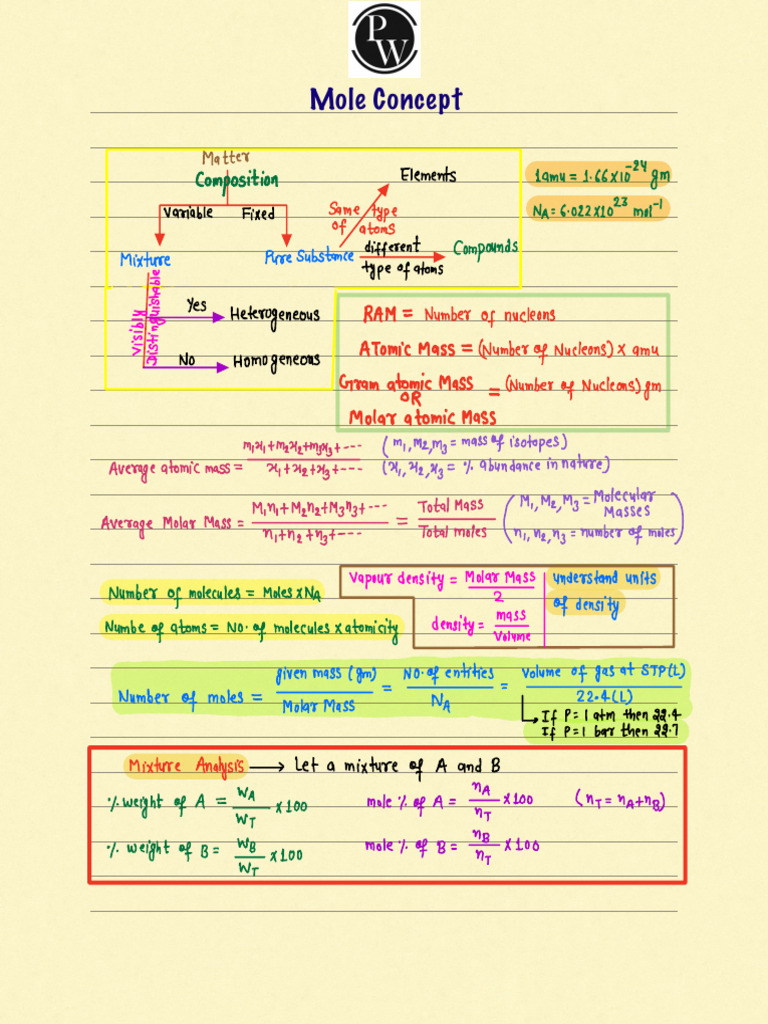 P
W
Mole Concept
Matter
Composition
Variable Fixed
Elements
Same type
of atoms
1amu = 1.66×10⁻²⁴ gm
N_A = 6.022×10²³ mol⁻¹
Mixture
Pure Substance
different
type of atoms
Compounds
Visibly
Distinguishable
Yes
Heterogeneous
No
Homogeneous
RAM = Number of nucleons
Atomic Mass = (Number of Nucleons) × amu
Gram atomic Mass
OR
Molar atomic Mass
= (Number of Nucleons) gm
Average atomic mass = (m₁x₁+m₂x₂+m₃x₃+---)/(x₁+x₂+x₃+---)
(m₁, m₂, m₃ = mass of isotopes)
(x₁, x₂, x₃ = % abundance in nature)
Average Molar Mass = (M₁n₁+M₂n₂+M₃n₃+---)/(n₁+n₂+n₃+---) = Total Mass/Total moles
(M₁, M₂, M₃ = Molecular
Masses
n₁, n₂, n₃ = number of moles)
Number of molecules = Moles × N_A
Numbe of atoms = No. of molecules × atomicity
Vapour density = Molar Mass/2
density = mass/Volume
understand units
of density
Number of moles = given mass (gm)/Molar Mass = No. of entities/N_A = Volume of gas at STP(L)/22.4(L)
If P=1 atm then 22.4
If P=1 bar then 22.7
Mixture Analysis → Let a mixture of A and B
% weight of A = W_A/W_T × 100
mole % of A = n_A/n_T × 100 (n_T = n_A+n_B)
% weight of B = W_B/W_T × 100
mole % of B = n_B/n_T × 100